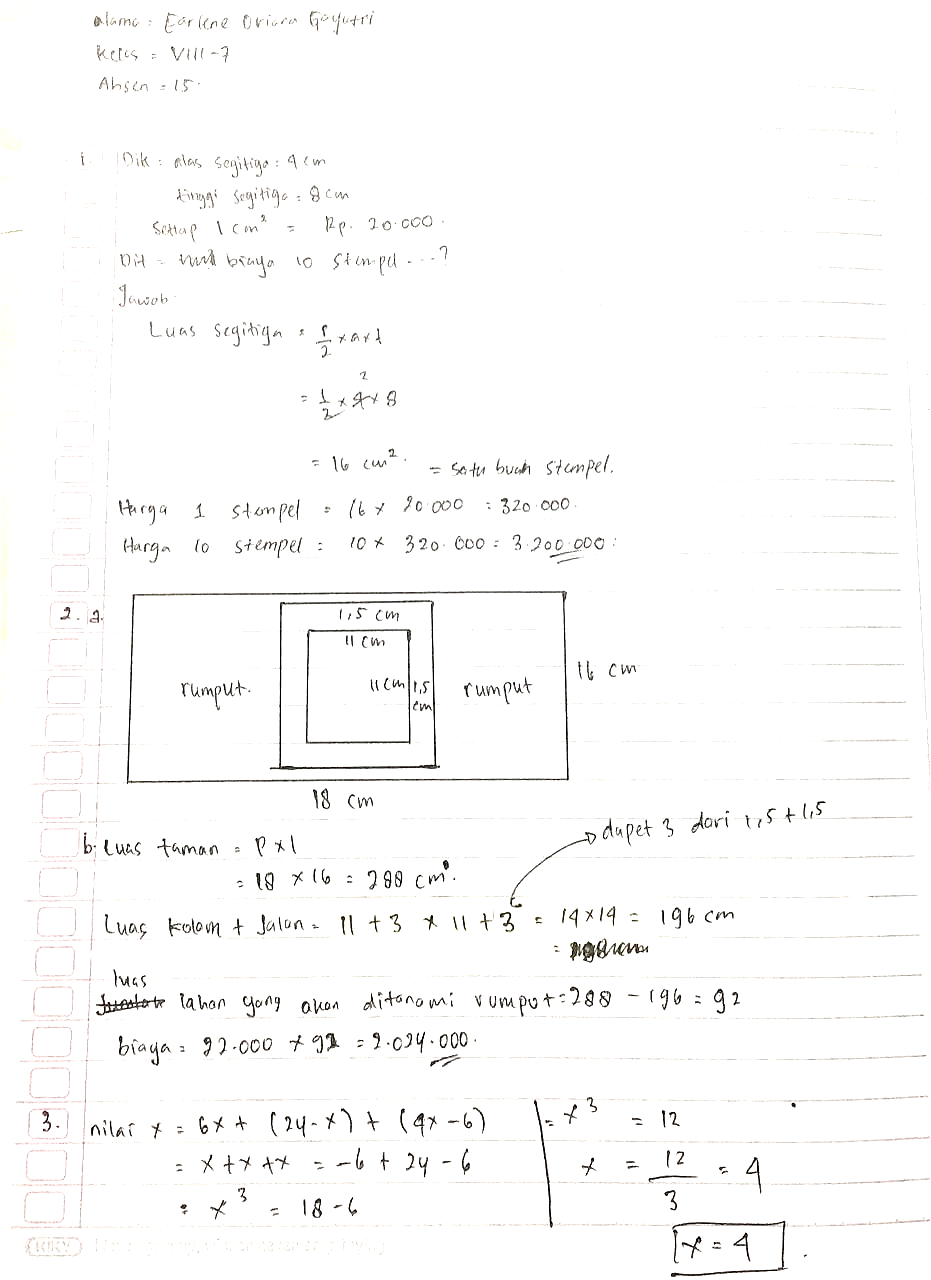 Nama : Earlene Oriara Gayatri
Kelas = VIII-7
Absen = 15.
1. Dik : alas segitiga : 4 cm
tinggi segitiga = 8 cm
Setiap 1 cm² = Rp. 20.000.
Dit = biaya 10 stempel ...?
Jawab
Luas segitiga = 1/2 x a x t
= 1/2 x 4 x 8
2
= 16 cm². = satu buah stempel.
Harga 1 stempel = 16 x 20.000 = 320.000.
Harga 10 stempel = 10 x 320.000 = 3.200.000:
2. a.
1,5 cm
11 cm
rumput. 11 cm 1,5 cm rumput 16 cm
18 cm
→ dapet 3 dari 1,5 + 1,5
b. Luas taman = P x l
= 18 x 16 = 288 cm².
Luas kolam + Jalan = 11 + 3 x 11 + 3 = 14 x 14 = 196 cm
luas lahan yang akan ditanami rumput = 288 - 196 = 92
biaya = 22.000 x 92 = 2.024.000.
3. nilai x = 6x + (24-x) + (4x-6)
= x + x + x = -6 + 24 - 6
= x³ = 18 - 6
= x³ = 12
x = 12/3 = 4
x = 4.